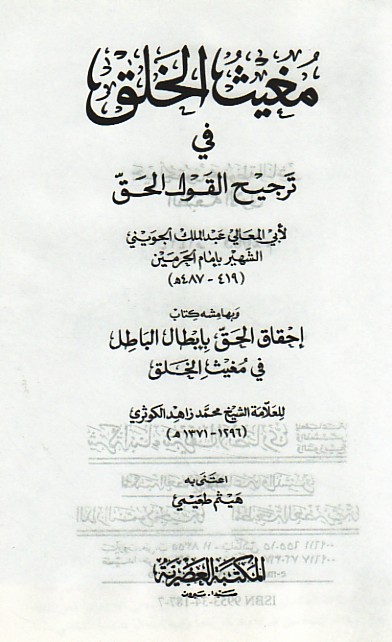 مُغيثُ الخَلق
في
تَرجيح القَول الحَقّ
لأبي المعالي عبد الملك الجويني
الشهير بإمام الحَرمين
(٤١٩ - ٤٨٧هـ)
وبهامشه كتاب
إحقاق الحَقّ بإبطال البَاطِل
في مُغيثِ الخَلق
للعلّامة الشيخ محمّد زاهد الكوثري
(١٢٩٦-١٣٧١هـ)
اعتنى به
هَيثم طعيمي
المكتبة العصرية
صَيدا - بيروت